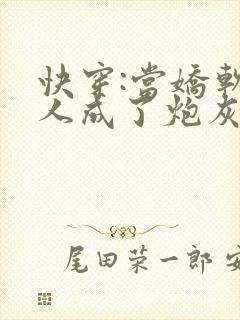 快穿:當嬌軟
人成了炮灰
尾田荣一郎